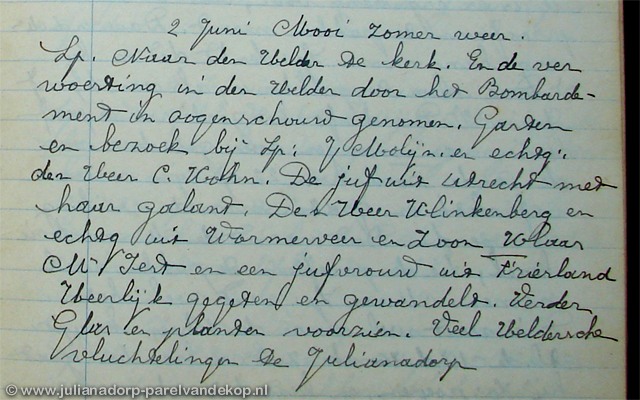 2 Juni Mooi zomer weer.
Lp. Naar den Helder te kerk. En de ver
woesting in den Helder door het Bombarde-
ment in oogenschouw genomen. Gasten
en bezoek bij Lp: J Molijn. en echtg:.
den Heer C. Hahn. De juf uit Utrecht met
haar galant. De Heer Klinkenberg en
echtg uit Wormerveer en Zoon Klaas
en een jufvrouw uit Friesland
Heerlijk gegeten en gewandeld. Verder
Glas en planten voorzien. Veel Heldersche
vluchtelingen te Julianadorp
© www.julianadorp-parelvandekop.nl